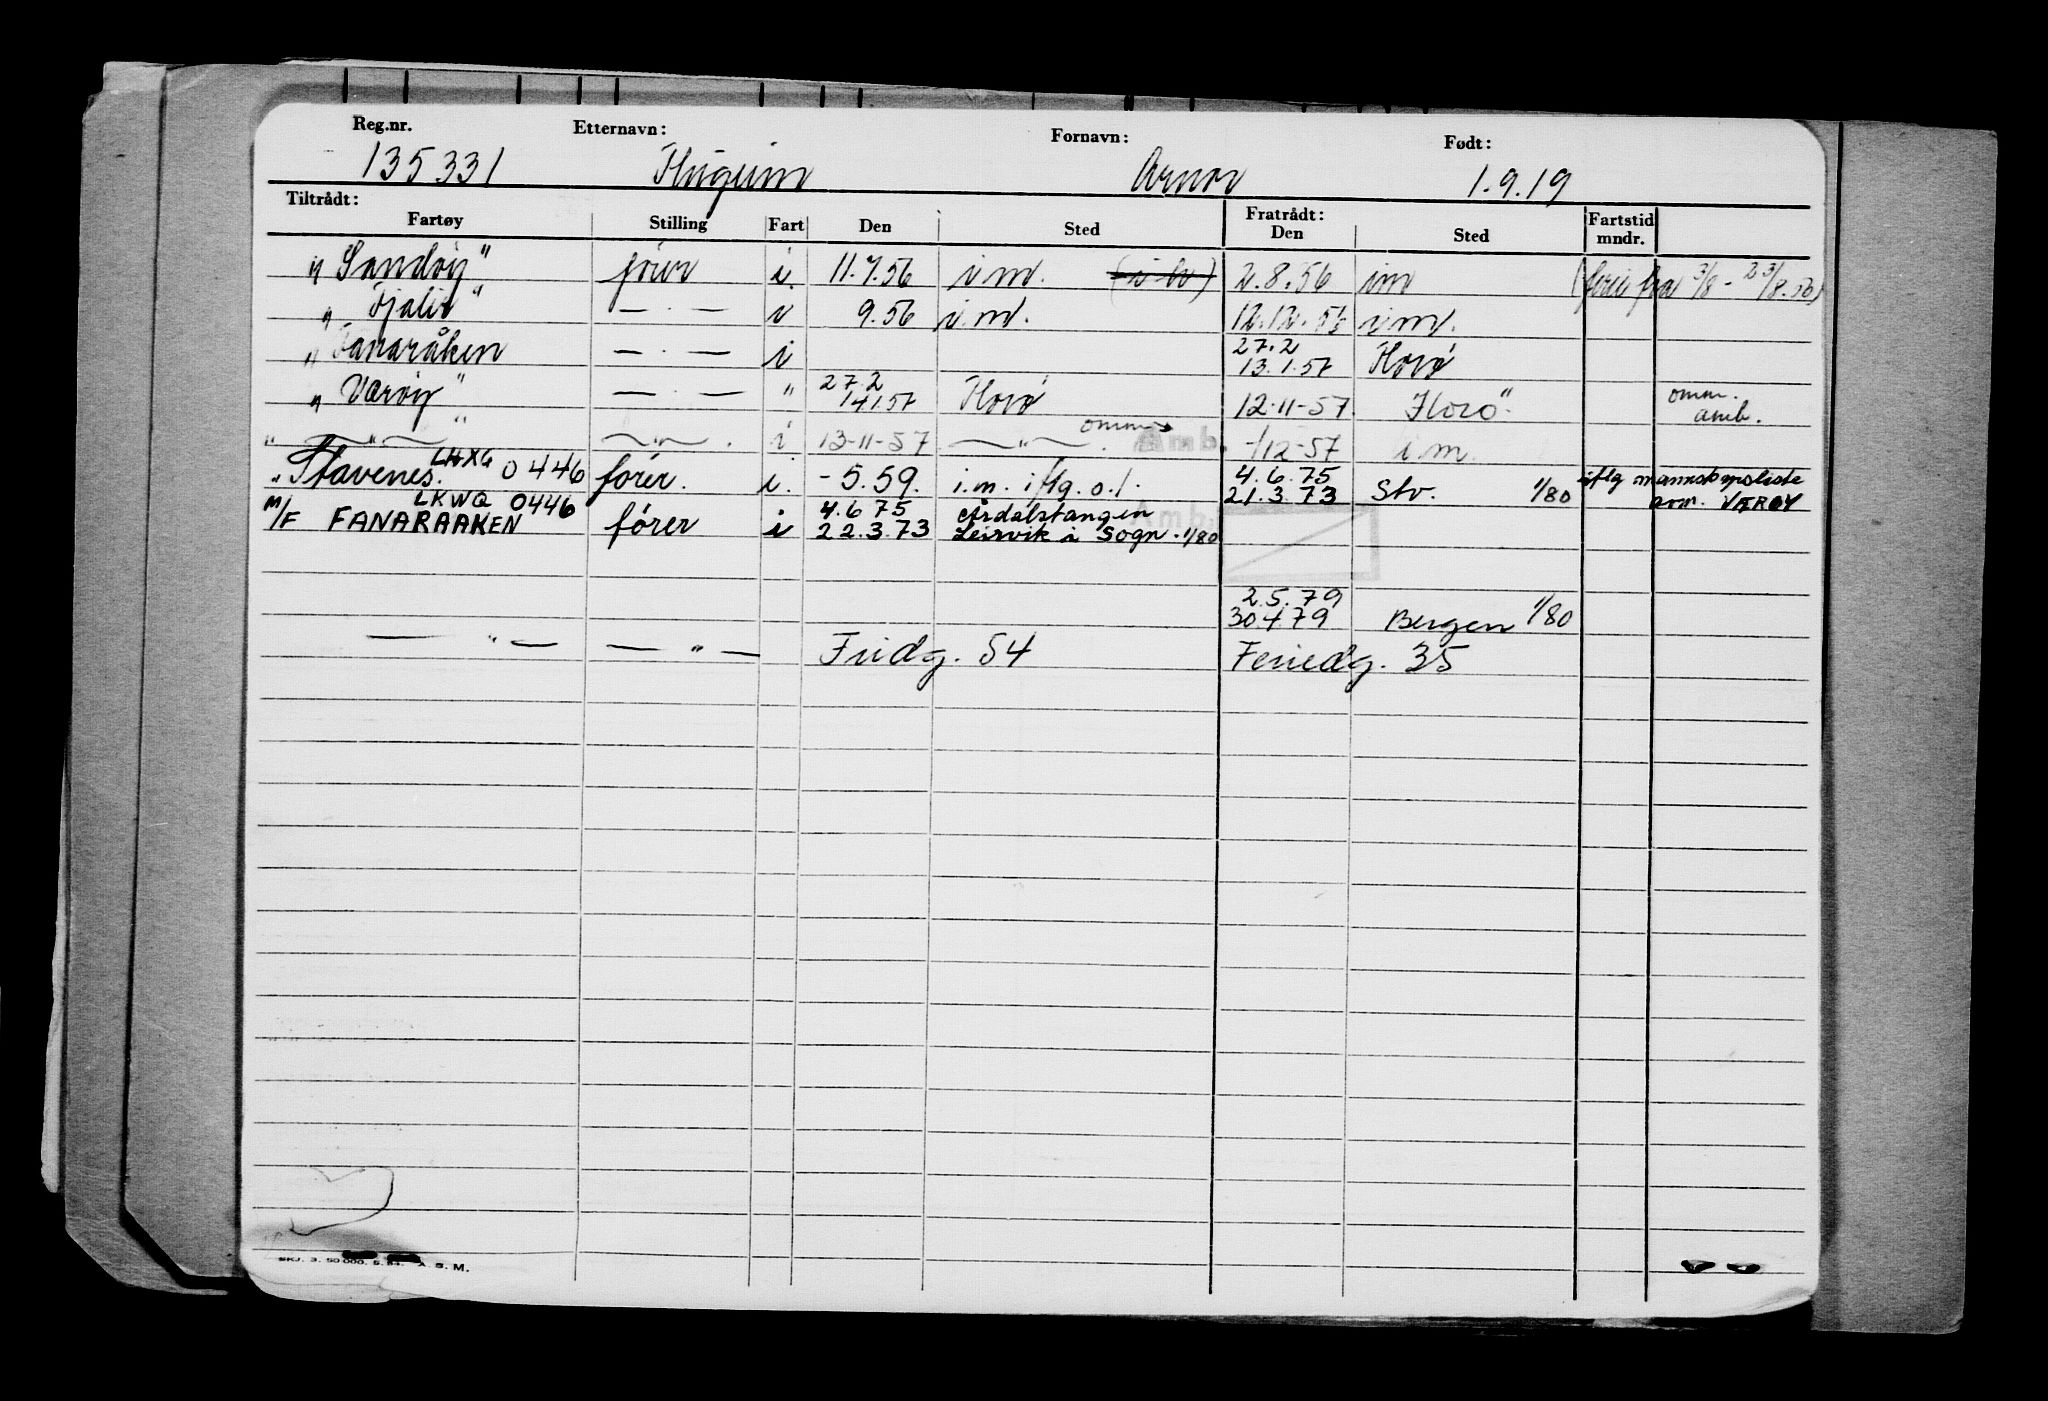 Reg.nr. Etternavn: Fornavn: Født:
135331 Arnor 1.9.19
Tiltrådt: Fratrådt:
Fartøy Stilling Fart Den Sted Den Sted Fartstid mndr.
"Sandøy" fører i. 11.7.56 i m. 2.8.56 im (ferie fra 3/8 - 23/8.56)
"Fjalir" — . — i 9.56 i.m. 12.12.56 i m.
"Fanaråken — . — i 27.2 13.1.57 Florø
"Værøy" — . — " 27.2 14.1.57 Florø 12-11-57 Florø omm. amb.
" — " — " — " — . i 13-11-57 — " — . omm Amb. -/12-57 i m.
"Stavenes. LHXG 0446 fører. i. -5.59. i.m. iflg. o.l. 4.6.75 21.3.73 Stv. 1/80 iflg mannskapsliste om. VÆRØY
M/F FANARAAKEN LKWQ 0446 fører i 4.6.75 22.3.73 Årdalstangen Leirvik i Sogn. 1/80 Amb.
2.5.79 30.4.79 Bergen 1/80
— " — — " — Fridg. 54 Feriedg. 35
SKJ. 3. 50 000. 5. 54. A. S. M.